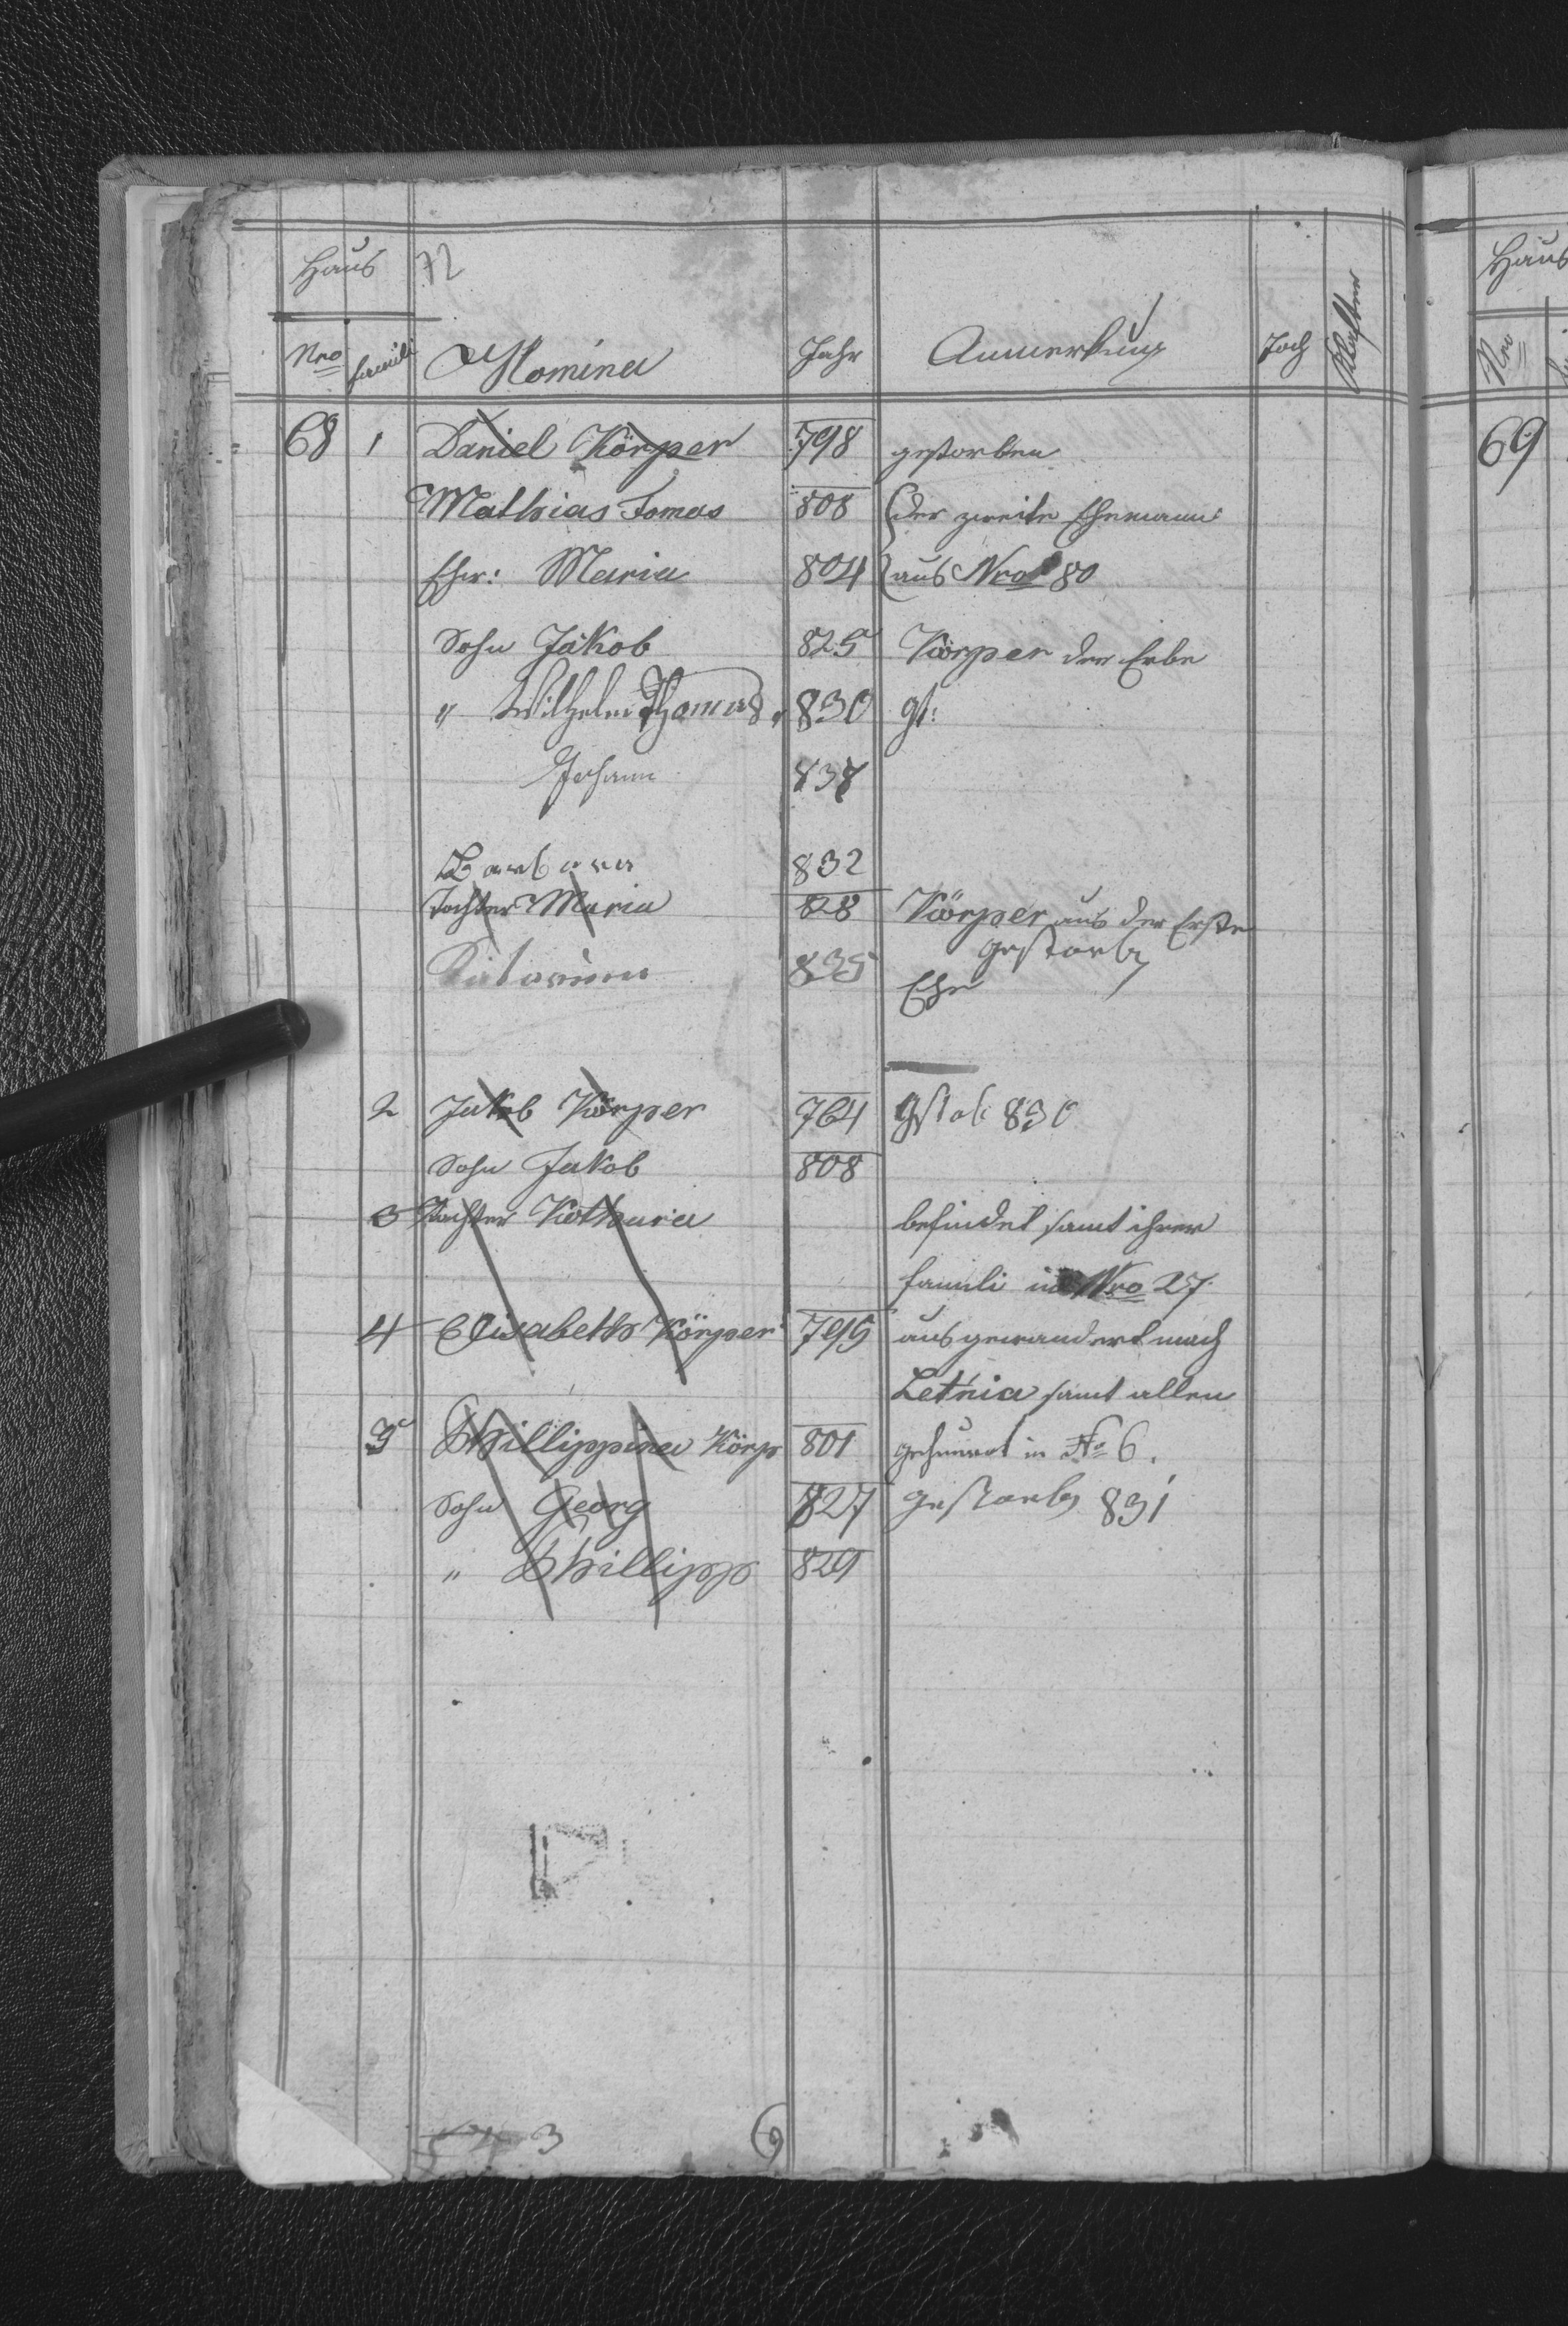 Haus 72
Nro famili Nomina Jahr Anmerkung Joch Klafter
68 1 Daniel Körper 798 gestorben
Mathias Tomas 808 der zweite Ehemann
Ehw: Maria 804 aus Nro 80
Sohn Jakob 825 Körper der Erbe
" Wilhelm Thomas 830 gst:
Johann 837
Barbara 832
Tochter Maria 828 Körper aus der Erste
gestorben
Katarina 835 Ehe
2 Jakob Körper 764 gstob 830
Sohn Jakob 808
3 Tochter befindet samt ihrer
famili in Nro 27
4 Elisabeth Körper 795 ausgewandert nach
Letnia samt allen
5 Phillippina Körp 801 geheurat in No 6.
Sohn Georg 827 gestorben 831
" Phillipp 829
3
9
Haus
Nro
69